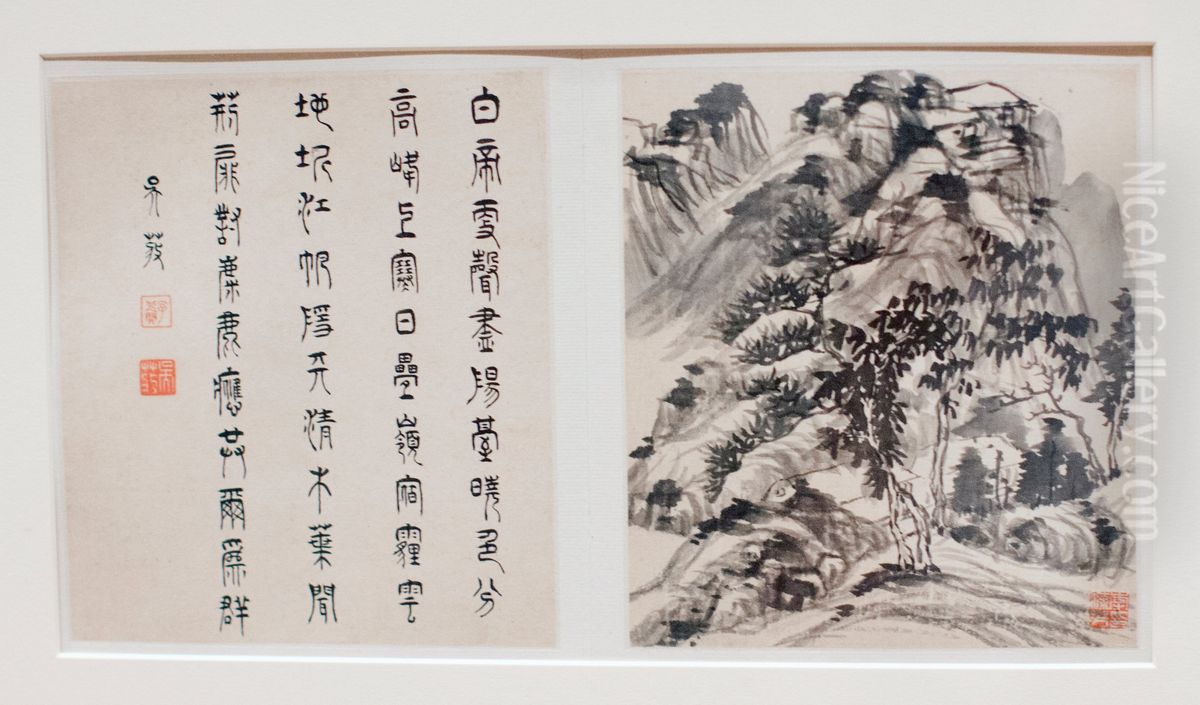 白帝更聲盡陽臺曉色分
高峰上寒日疊嶺宿霾雲
地坼江帆隱天清木葉聞
荊扉對麋鹿應共爾為群
吳
NiceArtGallery.com